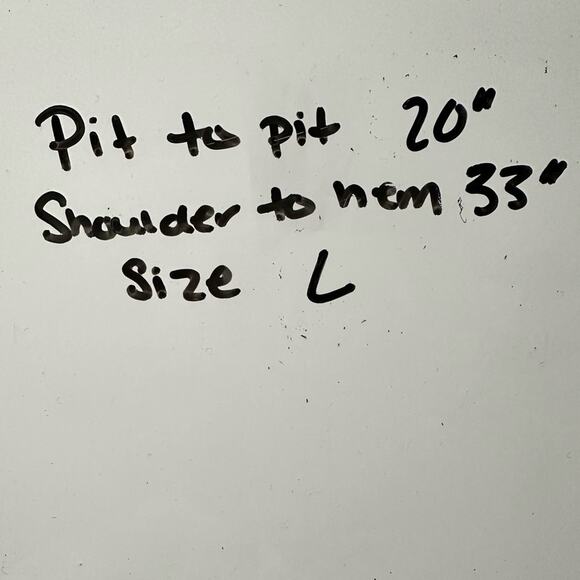 Pit to pit 20"
Shoulder to hem 33"
Size L